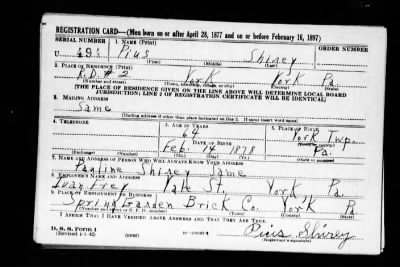 REGISTRATION CARD—(Men born on or after April 28, 1877 and on or before February 16, 1897)
SERIAL NUMBER 1. NAME (Print) ORDER NUMBER
U 491 Pius Shirey
2. PLACE OF RESIDENCE (Print)
R.D. #2 York York Pa.
(Number and street) (Town, township, village, or city) (County) (State)
[THE PLACE OF RESIDENCE GIVEN ON THE LINE ABOVE WILL DETERMINE LOCAL BOARD
JURISDICTION; LINE 2 OF REGISTRATION CERTIFICATE WILL BE IDENTICAL]
3. MAILING ADDRESS
Same
[Mailing address if other than place indicated on line 2. If same insert word same]
4. TELEPHONE 5. AGE IN YEARS 6. PLACE OF BIRTH
64 York Twp.
DATE OF BIRTH (Town or county)
Feb. 14 1878 Pa.
(Exchange) (Number) (Mo.) (Day) (Yr.) (State or country)
7. NAME AND ADDRESS OF PERSON WHO WILL ALWAYS KNOW YOUR ADDRESS
Pauline Shirey Same
8. EMPLOYER'S NAME AND ADDRESS
Frey St. York Pa.
9. PLACE OF EMPLOYMENT OR BUSINESS
Spring Garden Brick Co. York Pa.
(Number and street or R. F. D. number) (Town) (County) (State)
I AFFIRM THAT I HAVE VERIFIED ABOVE ANSWERS AND THAT THEY ARE TRUE.
D. S. S. Form 1
(Revised 4-1-42) (over) Pius Shirey
(Registrant's signature)